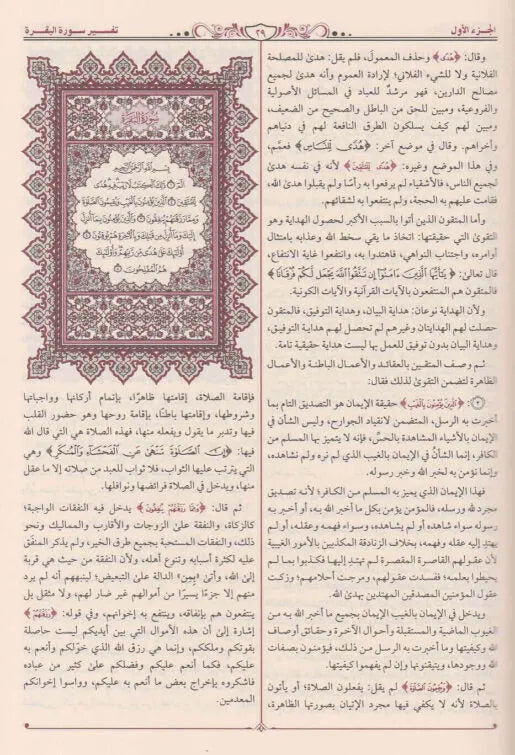 الجزء الأول
٢٩
تفسير سورة البقرة
وقال: ﴿هُدًى﴾ وحذف المعمول، فلم يقل: هدىً للمصلحة
الفلانية ولا للشيء الفلاني؛ لإرادة العموم وأنه هدىً لجميع
مصالح الدارين، فهو مرشدٌ للعباد في المسائل الأصولية
والفروعية، ومبين للحق من الباطل والصحيح من الضعيف،
ومبين لهم كيف يسلكون الطرق النافعة لهم في دنياهم
وأخراهم. وقال في موضع آخر: ﴿هُدًى لِّلنَّاسِ﴾ فعمَّم،
وفي هذا الموضع وغيره: ﴿هُدًى لِّلْمُتَّقِينَ﴾ لأنه في نفسه هدىً
لجميع الناس، فالأشقياء لم يرفعوا به رأسًا ولم يقبلوا هدىٰ الله،
فقامت عليهم به الحجة، ولم ينتفعوا به لشقائهم.
وأما المتقون الذين أتوا بالسبب الأكبر لحصول الهداية وهو
التقوىٰ التي حقيقتها: اتخاذ ما يقي سخط الله وعذابه بامتثال
أوامره، واجتناب النواهي، فاهتدوا به، وانتفعوا غاية الانتفاع،
قال تعالىٰ: ﴿يَٰٓأَيُّهَا ٱلَّذِينَ ءَامَنُوٓا۟ إِن تَتَّقُوا۟ ٱللَّهَ يَجْعَل لَّكُمْ فُرْقَانًا﴾
فالمتقون هم المنتفعون بالآيات القرآنية والآيات الكونية.
ولأن الهداية نوعان: هداية البيان، وهداية التوفيق، فالمتقون
حصلت لهم الهدايتان وغيرهم لم تحصل لهم هداية التوفيق،
وهداية البيان بدون توفيق للعمل بها ليست هداية حقيقية تامة.
ثم وصف المتقين بالعقائد والأعمال الباطنة والأعمال
الظاهرة لتضمن التقوىٰ لذلك فقال:
﴿ٱلَّذِينَ يُؤْمِنُونَ بِٱلْغَيْبِ﴾ حقيقة الإيمان هو التصديق التام بما
أخبرت به الرسل، المتضمن لانقياد الجوارح، وليس الشأن في
الإيمان بالأشياء المشاهدة بالحسِّ، فإنه لا يتميز بها المسلم من
الكافر، إنما الشأنُ في الإيمان بالغيب الذي لم نره ولم نشاهده،
وإنما نؤمن به لخبر الله وخبر رسوله.
فهذا الإيمان الذي يميز به المسلم من الكافر؛ لأنه تصديق
مجرد لله ورسله، فالمؤمن يؤمن بكل ما أخبر الله به، أو أخبر به
رسوله سواء شاهده أو لم يشاهده، وسواء فهمه وعقله، أو لم
يهتدِ إليه عقله وفهمه، بخلاف الزنادقة المكذبين بالأمور الغيبية
لأن عقولهم القاصرة المقصرة لم تهتدِ إليها فكذبوا بما لم
يحيطوا بعلمه؛ ففسدت عقولهم، ومرجت أحلامهم؛ وزكت
عقول المؤمنين المصدقين المهتدين بهدىٰ الله.
ويدخل في الإيمان بالغيب الإيمان بجميع ما أخبر الله به من
الغيوب الماضية والمستقبلة وأحوال الآخرة وحقائق أوصاف
الله وكيفيتها وما أخبرت به الرسل من ذلك، فيؤمنون بصفات
الله ووجودها، ويتيقنونها وإن لم يفهموا كيفيتها.
ثم قال: ﴿وَيُقِيمُونَ ٱلصَّلَوٰةَ﴾ لم يقل: يفعلون الصلاة؛ أو يأتون
بالصلاة لأنه لا يكفي فيها مجرد الإتيان بصورتها الظاهرة،
سُورَةُ البَقَرَةِ
بِسْمِ ٱللَّهِ ٱلرَّحْمَٰنِ ٱلرَّحِيمِ
الٓمٓ ١ ذَٰلِكَ ٱلْكِتَٰبُ لَا رَيْبَ فِيهِ هُدًى
لِّلْمُتَّقِينَ ٢ ٱلَّذِينَ يُؤْمِنُونَ بِٱلْغَيْبِ وَيُقِيمُونَ ٱلصَّلَوٰةَ
وَمِمَّا رَزَقْنَٰهُمْ يُنفِقُونَ ٣ وَٱلَّذِينَ يُؤْمِنُونَ بِمَآ أُنزِلَ
إِلَيْكَ وَمَآ أُنزِلَ مِن قَبْلِكَ وَبِٱلْءَاخِرَةِ هُمْ يُوقِنُونَ ٤
أُو۟لَٰٓئِكَ عَلَىٰ هُدًى مِّن رَّبِّهِمْ وَأُو۟لَٰٓئِكَ
هُمُ ٱلْمُفْلِحُونَ ٥
فإقامة الصلاة، إقامتها ظاهرًا، بإتمام أركانها وواجباتها
وشروطها، وإقامتها باطنًا، بإقامة روحها وهو حضور القلب
فيها وتدبر ما يقول ويفعله منها، فهذه الصلاة هي التي قال الله
فيها: ﴿إِنَّ ٱلصَّلَوٰةَ تَنْهَىٰ عَنِ ٱلْفَحْشَآءِ وَٱلْمُنكَرِ﴾ وهي
التي يترتب عليها الثواب، فلا ثواب للعبد من صلاته إلا ما عقل
منها، ويدخل في الصلاة فرائضها ونوافلها.
ثم قال: ﴿وَمِمَّا رَزَقْنَٰهُمْ يُنفِقُونَ﴾ يدخل فيه النفقات الواجبة؛
كالزكاة، والنفقة علىٰ الزوجات والأقارب والمماليك ونحو
ذلك، والنفقات المستحبة بجميع طرق الخير، ولم يذكر المنفَق
عليه لكثرة أسبابه وتنوع أهله، ولأن النفقة من حيث هي قربة
إلىٰ الله، وأتىٰ «بمِن» الدالة علىٰ التبعيض؛ لينبههم أنه لم يرد
منهم إلا جزءًا يسيرًا من أموالهم غير ضار لهم، ولا مثقل بل
ينتفعون هم بإنفاقه، وينتفع به إخوانهم، وفي قوله: ﴿رَزَقْنَٰهُمْ﴾
إشارة إلىٰ أن هذه الأموال التي بين أيديكم ليست حاصلة
بقوتكم وملككم، وإنما هي رزق الله الذي خوَّلكم وأنعم به
عليكم، فكما أنعم عليكم وفضلكم علىٰ كثير من عباده
فاشكروه بإخراج بعض ما أنعم به عليكم، وواسوا إخوانكم
المعدمين.